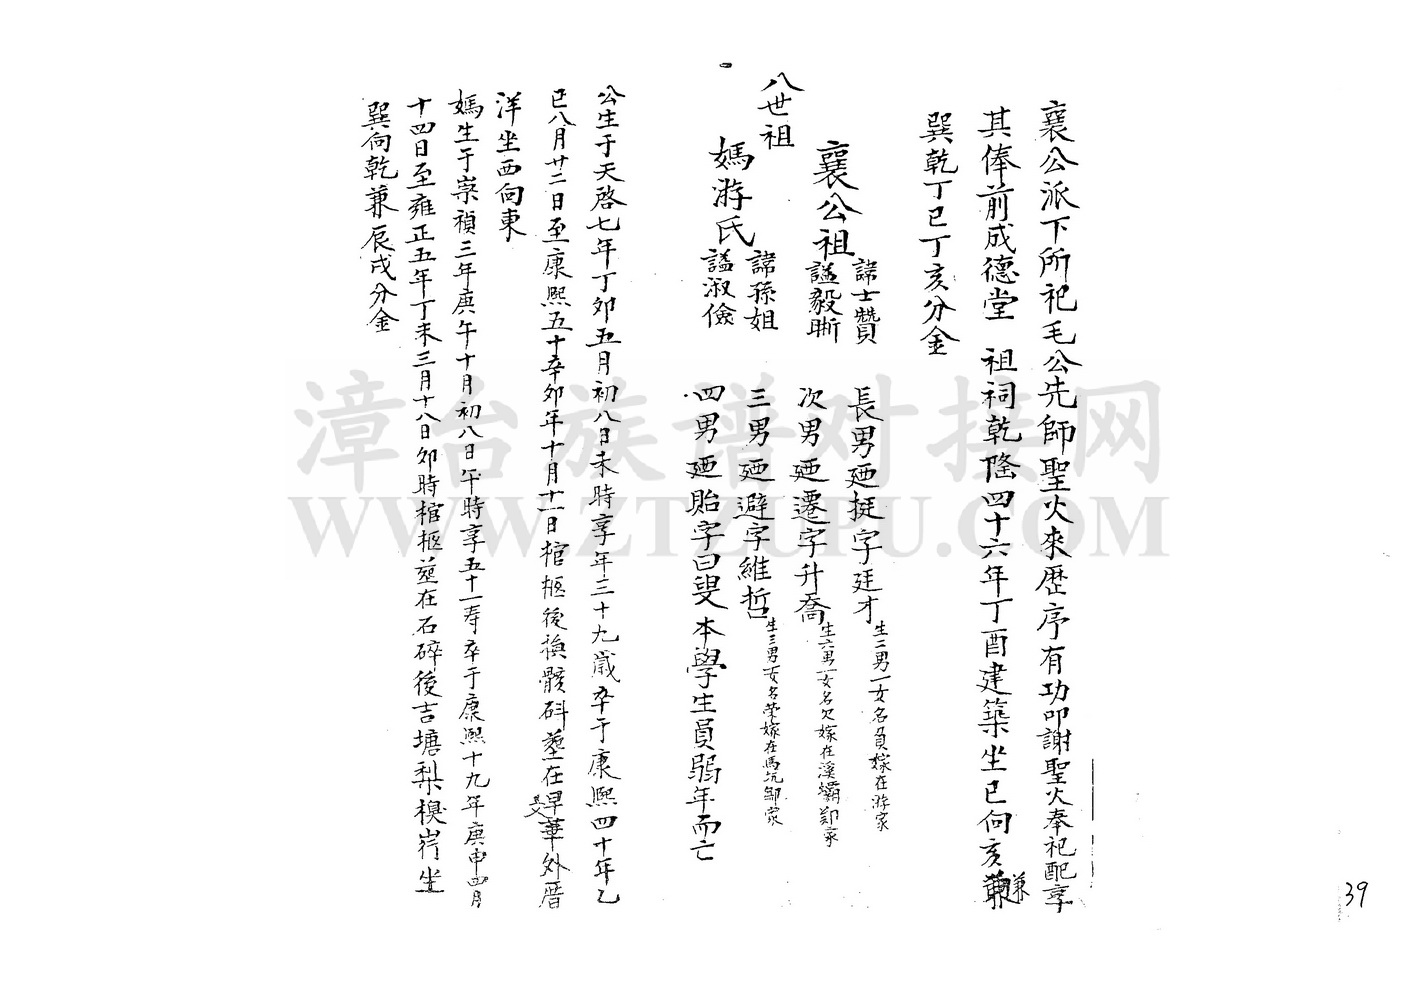 襄公派下所祀毛公先師聖火來歷序有功叩謝聖火奉祀配享
其俸前成德堂 祖祠乾隆四十六年丁酉建築坐巳向亥兼
巽乾丁巳丁亥分金
八世祖
襄公祖
諱士贊
諡毅晰
媽游氏
諱孫姐
諡淑儉
長男廼挺字廷才生二男一女名負嫁在游家
次男廼遷字升喬生六男一女名欠嫁在溪壩鄭家
三男廼避字維哲生三男一女名榮嫁在馬坑鄒家
四男廼貽字曰叟本學生員弱年而亡
公生于天啓七年丁卯五月初八日未時享年三十九歲卒于康熙四十年乙
巳八月廿二日至康熙五十辛卯年十月十一日棺柩後換骸斗塟在旱華外厝
洋坐西向東
媽生于崇禎三年庚午十月初八日午時享五十一寿卒于康熙十九年庚申四月
十四日至雍正五年丁未三月十八日卯時棺柩塟在石碎後吉塘梨横岃坐
巽向乾兼辰戌分金
39
漳台族谱对接网
WWW.ZTZUPU.COM